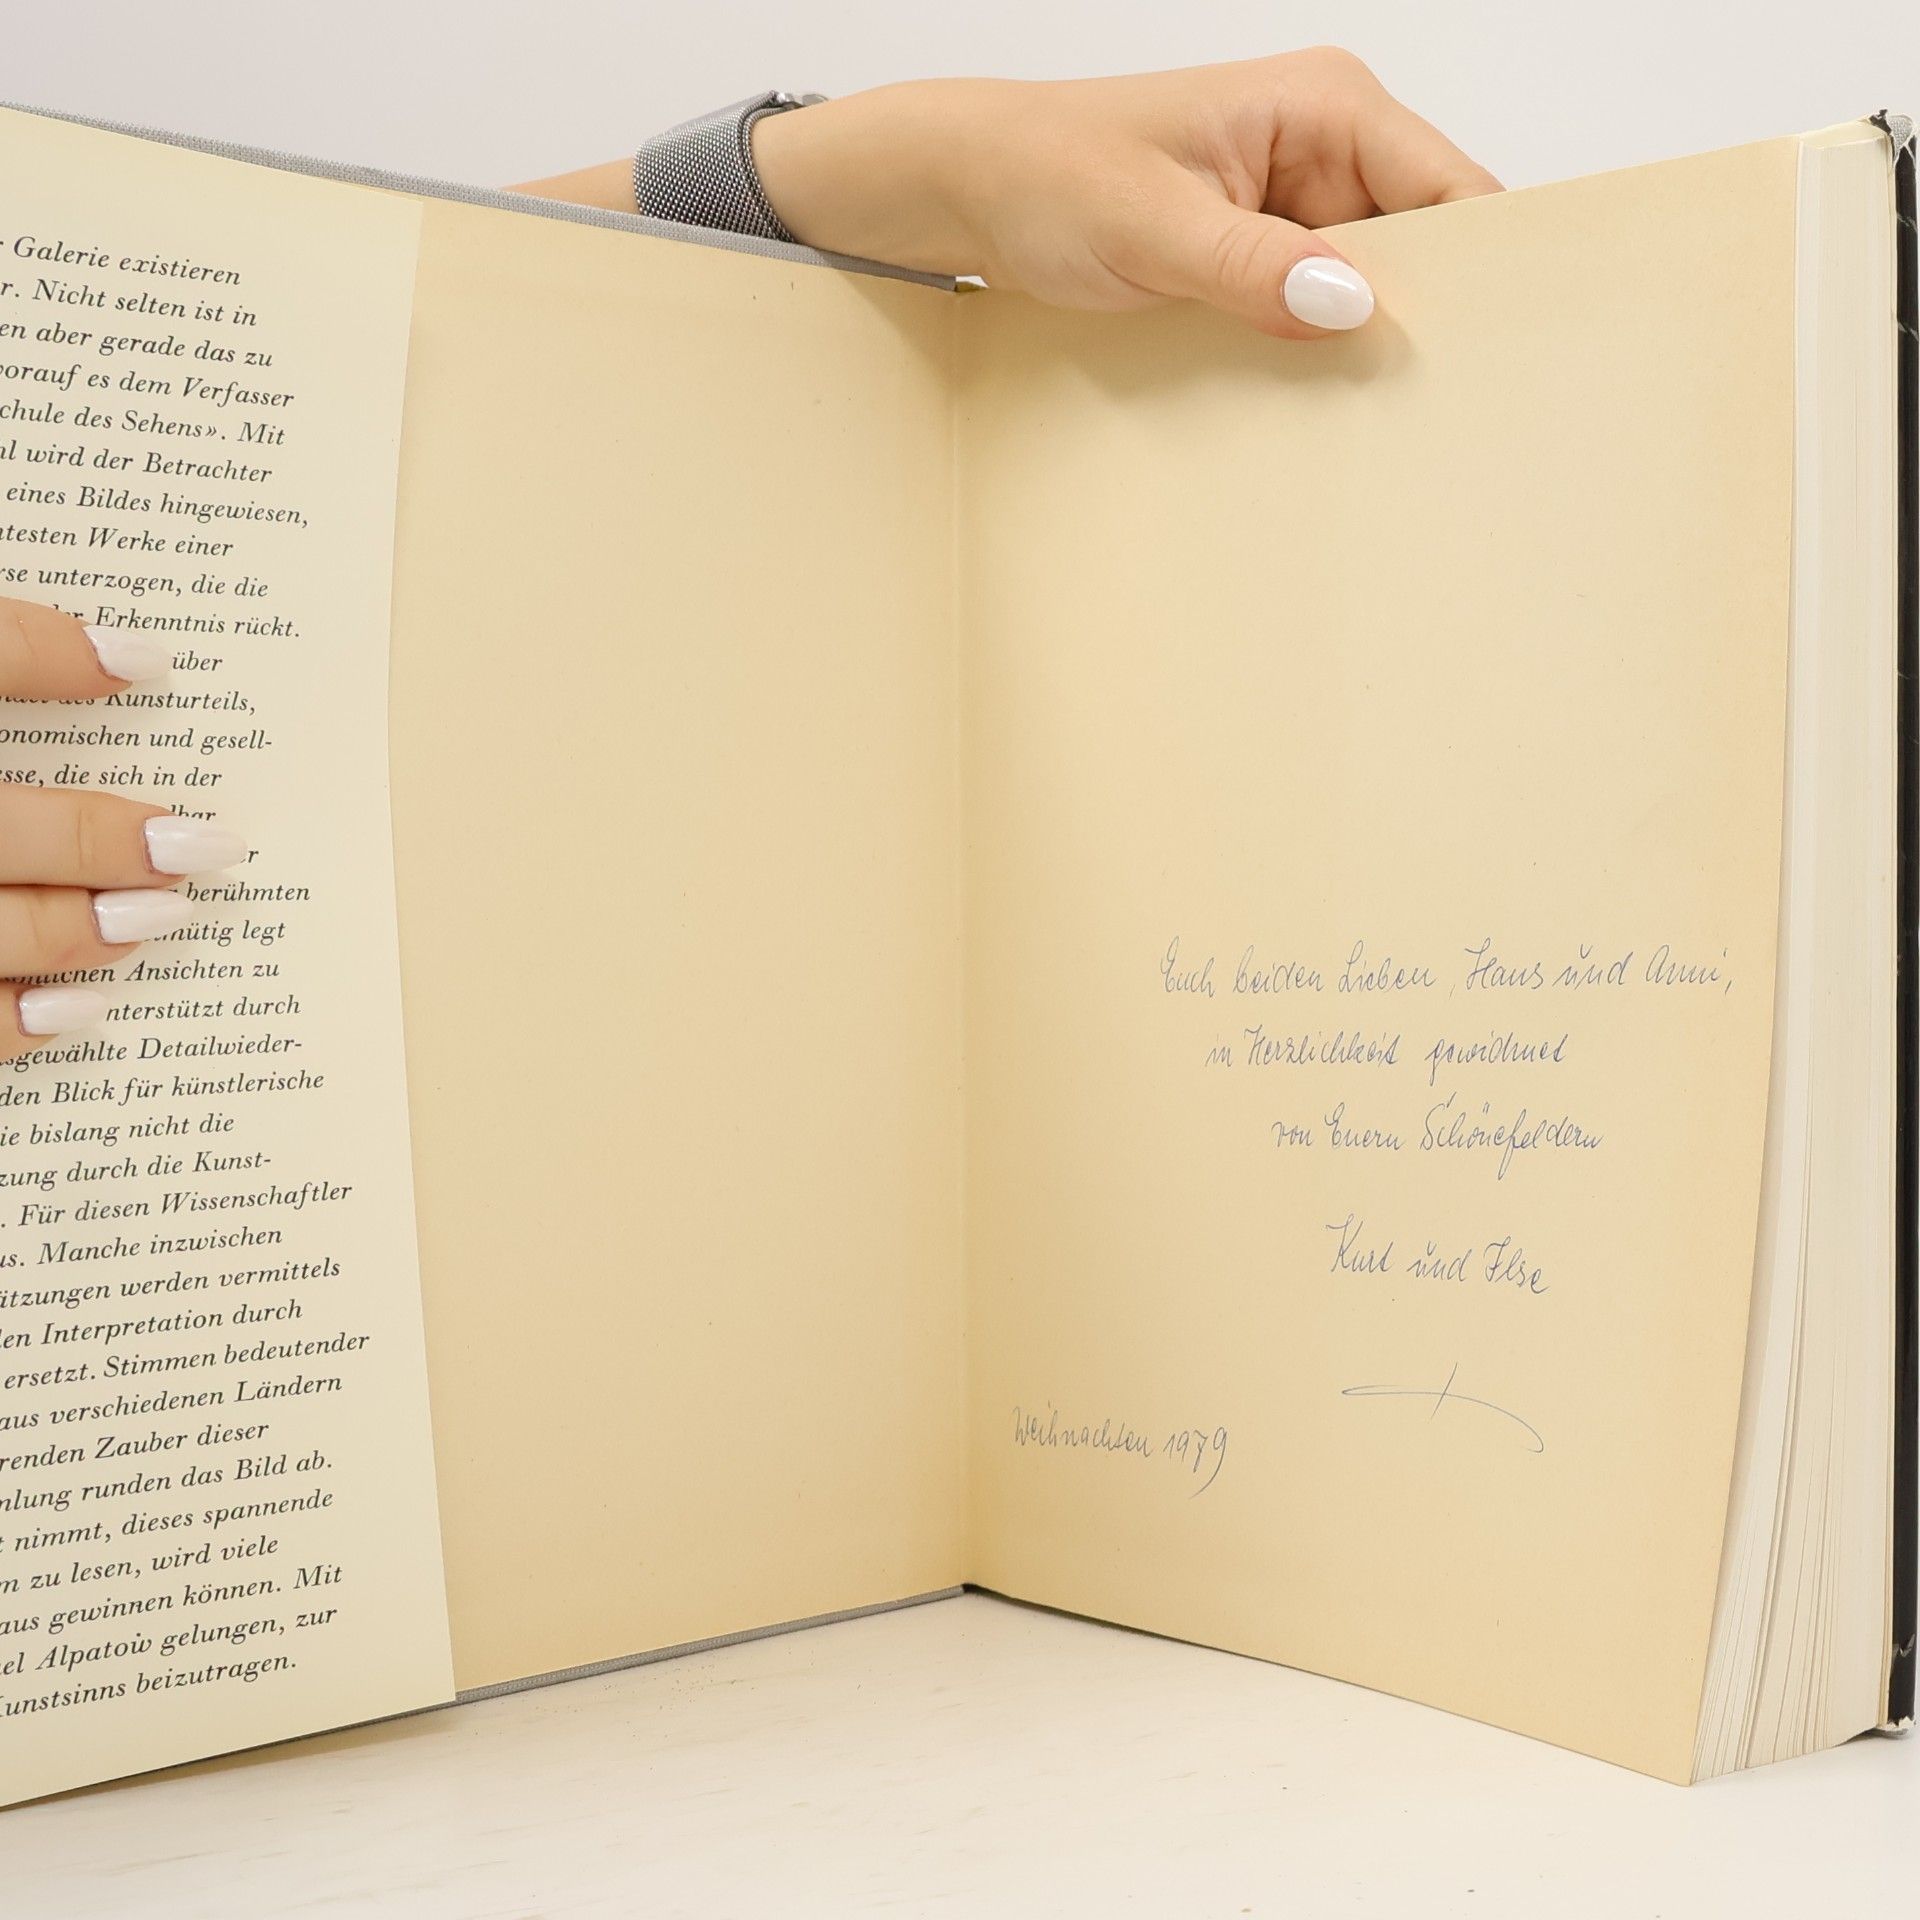 r Galerie existieren
r. Nicht selten ist in
en aber gerade das zu
vorauf es dem Verfasser
chule des Sehens». Mit
hl wird der Betrachter
eines Bildes hingewiesen,
ntesten Werke einer
rse unterzogen, die die
der Erkenntnis rückt.
über
des Kunsturteils,
onomischen und gesell-
esse, die sich in der
lbar
er
berühmten
mütig legt
nlichen Ansichten zu
nterstützt durch
sgewählte Detailwieder-
den Blick für künstlerische
ie bislang nicht die
zung durch die Kunst-
. Für diesen Wissenschaftler
us. Manche inzwischen
ätzungen werden vermittels
len Interpretation durch
ersetzt. Stimmen bedeutender
aus verschiedenen Ländern
renden Zauber dieser
mlung runden das Bild ab.
t nimmt, dieses spannende
m zu lesen, wird viele
aus gewinnen können. Mit
ael Alpatow gelungen, zur
Kunstsinns beizutragen.
Euch beiden Lieben, Hans und Anni,
in Herzlichkeit gewidmet
von Euern Schönefeldern
Kurt und Ilse
Weihnachten 1979